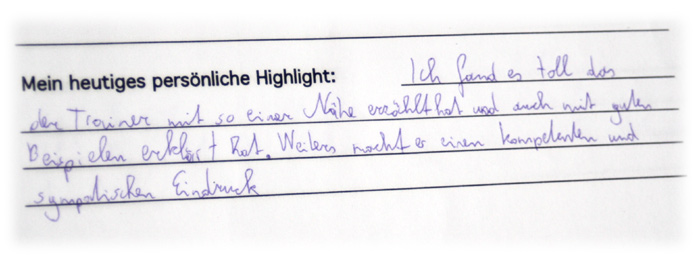 Mein heutiges persönliche Highlight: Ich fand es toll das
der Trainer mit so einer Nähe erzählt hat und auch mit guten
Beispielen erklärt hat. Weiters macht er einen kompetenten und
sympatischen Eindruck